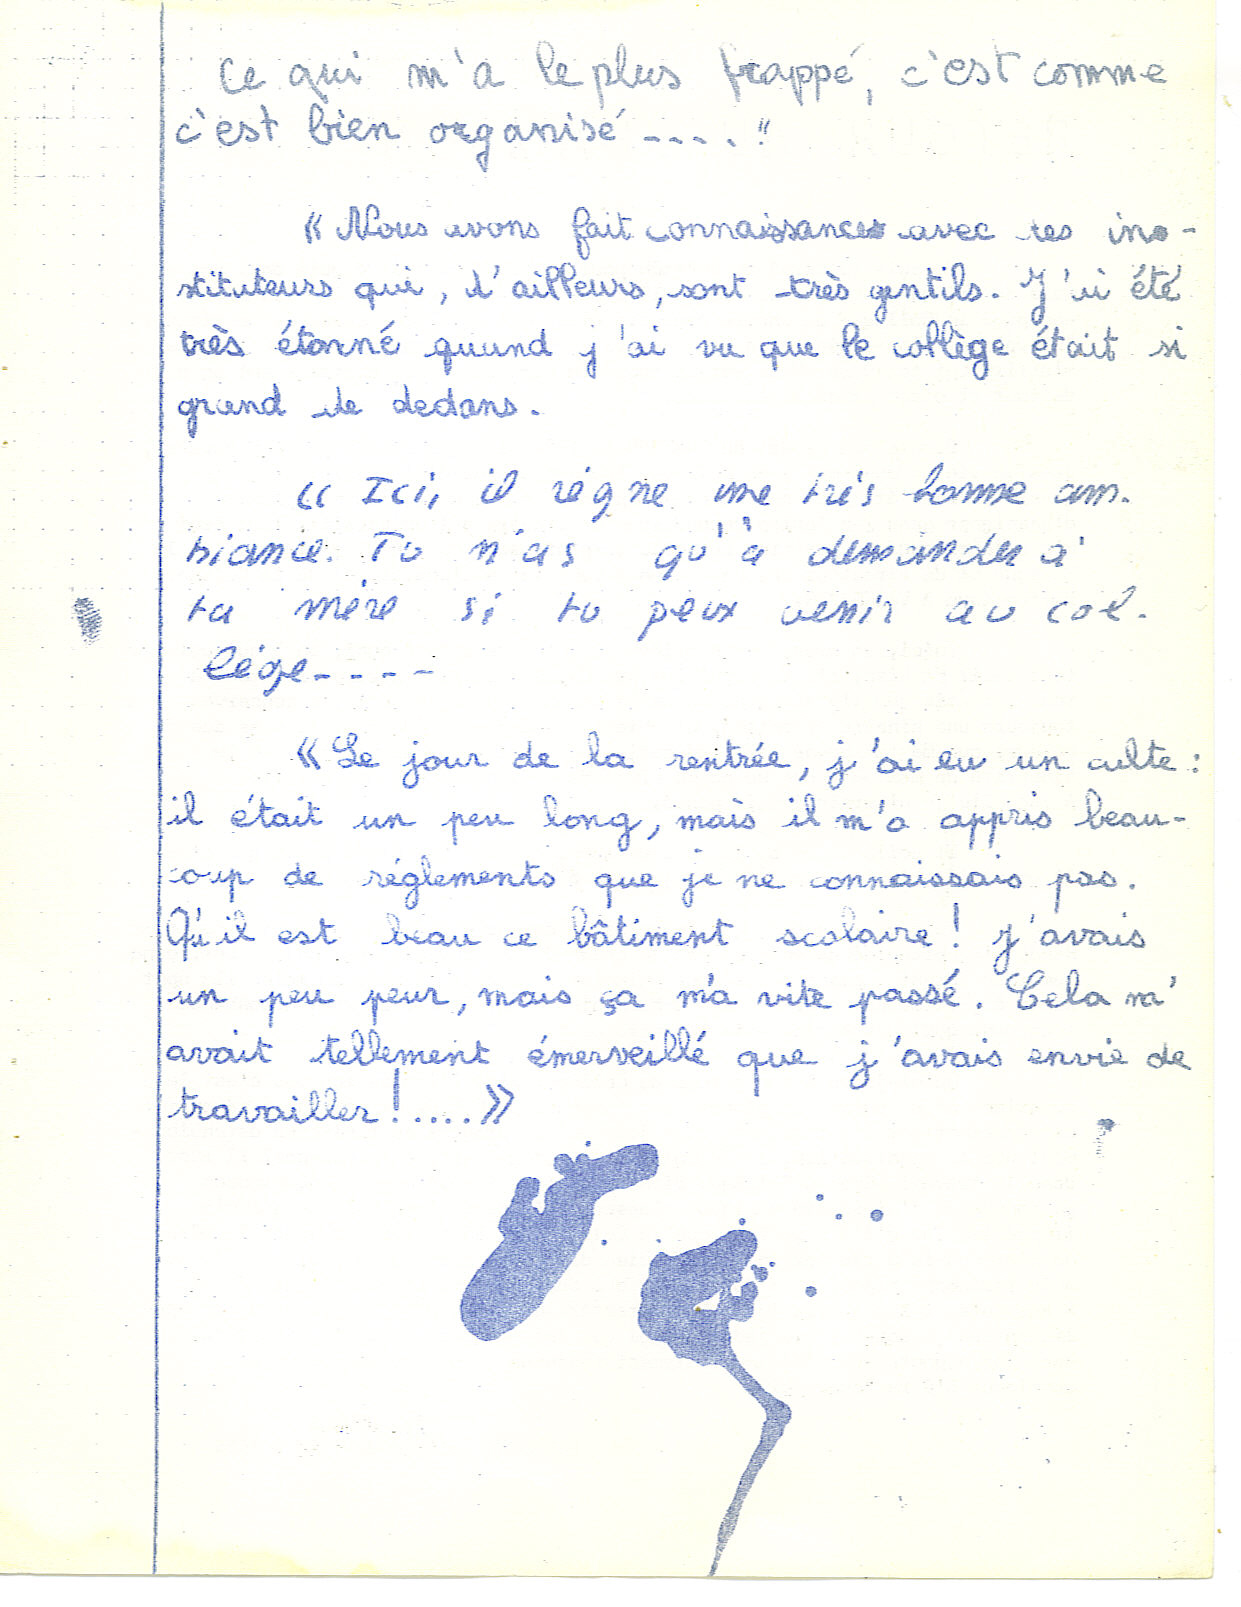 Ce qui m'a le plus frappé, c'est comme
c'est bien organisé ----."
« Nous avons fait connaissances avec les ins-
stituteurs qui, d'ailleurs, sont très gentils. J'ai été
très étonné quand j'ai vu que le collège était si
grand de dedans.
« Ici, il règne une très bonne am-
biance. Tu n'as qu'à demander à
ta mère si tu peux venir au col-
lége----
« Le jour de la rentrée, j'ai eu un culte :
il était un peu long, mais il m'a appris beau-
coup de réglements que je ne connaissais pas.
Qu'il est beau ce bâtiment scolaire ! J'avais
un peu peur, mais ça m'a vite passé. Cela m'
avait tellement émerveillé que j'avais envie de
travailler !.... »